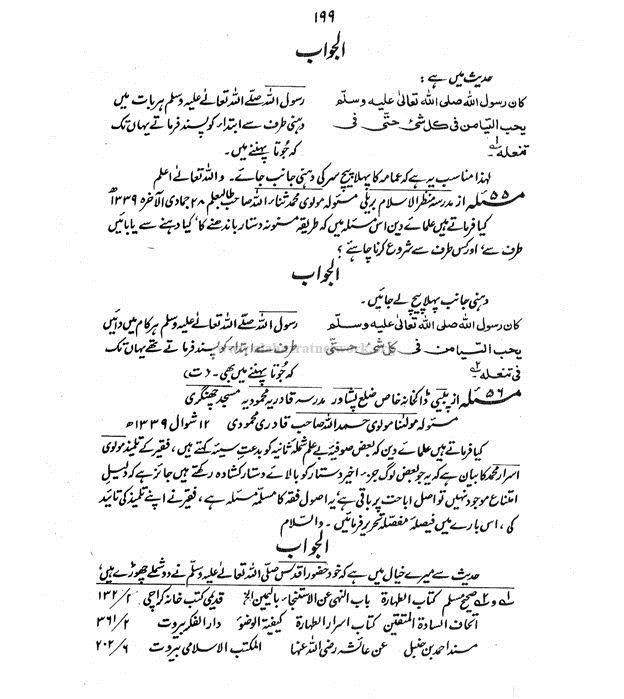 ۱۹۹
الجواب
حدیث میں ہے :
کان رسول اللہ صلی اللہ تعالیٰ علیہ وسلم
یحب التیامن فی کل شئ حتّٰی فی
تنعلہ ۱؎
رسول اللہ صلے اللہ تعالےٰ علیہ وسلم ہر بات میں
دہنی طرف سے ابتداء کو پسند فرماتے یہاں تک
کہ جُوتا پہننے میں۔
لہذا مناسب یہ ہے کہ عمامہ کا پہلا پیچ سر کی دہنی جانب جائے۔ واللہ تعالےٰ اعلم
مسئلہ ۵۵ از مدرسہ منظر الاسلام بریلی مسئولہ مولوی محمد ثناء اللہ صاحب طالبعلم ۲۸ جمادی الآخرہ ۱۳۳۹ھ
کیا فرماتے ہیں علمائے دین اس مسئلہ میں کہ طریقہ مسنونہ دستار باندھنے کا کیا دہنے سے یا بائیں
طرف سے، اور کس طرف سے شروع کرنا چاہئے ؟
الجواب
دہنی جانب پہلا پیچ لے جائیں۔
کان رسول اللہ صلی اللہ تعالیٰ علیہ وسلم
یحب التیامن فی کل شئ حتّٰی
فی تنعلہ ۲؎
رسول اللہ صلے اللہ تعالےٰ علیہ وسلم ہر کام میں دائیں
طرف سے ابتداء کو پسند فرماتے تھے یہاں تک
کہ جُوتا پہننے میں بھی۔ (ت)
مسئلہ ۵۶ از پیپی ڈاکخانہ خاص ضلع پشاور مدرسہ قادریہ محمودیہ مسجد چھنگری
مسئولہ مولٰنا مولوی حمد اللہ صاحب قادری محمودی ۱۲ شوال ۱۳۳۹ھ
کیا فرماتے ہیں علمائے دین کہ بعض صوفیۂ بے علم شملۂ ثانیہ کو بدعتِ سیئہ کہتے ہیں ، فقیر کے تلمیذ مولوی
اسرار محمد کا بیان ہے کہ یہ جو بعض لوگ جزء اخیر دستار کو بالائے دستار کشادہ رکھتے ہیں جائز ہے کہ دلیل
امتناع موجود نہیں تو اصل اباحت پر باقی ہے، یہ اصول فقہ کا مسلّمہ مسئلہ ہے ، فقیر نے اپنے تلمیذ کی تائید
کی ، اس بارے میں فیصلہ مفصلہ تحریر فرمائیں۔ والسلام
الجواب
حدیث سے میرے خیال میں ہے کہ خود حضور اقدس صلی اللہ تعالےٰ علیہ وسلم نے دو شملے چھوڑے ہیں
۱؎ و ۲؎ صحیح مسلم کتاب الطہارۃ باب النہی عن الاستنجاء بالیمین الخ قدیمی کتب خانہ کراچی ۱۳۲/۲
اتحاف السادۃ المتقین کتاب اسرار الطہارۃ کیفیۃ الوضوء دار الفکر بیروت ۳۶۱/۲
مسند احمد بن حنبل عن عائشہ رضی اللہ عنہا المکتب الاسلامی بیروت ۲۰۲/۶